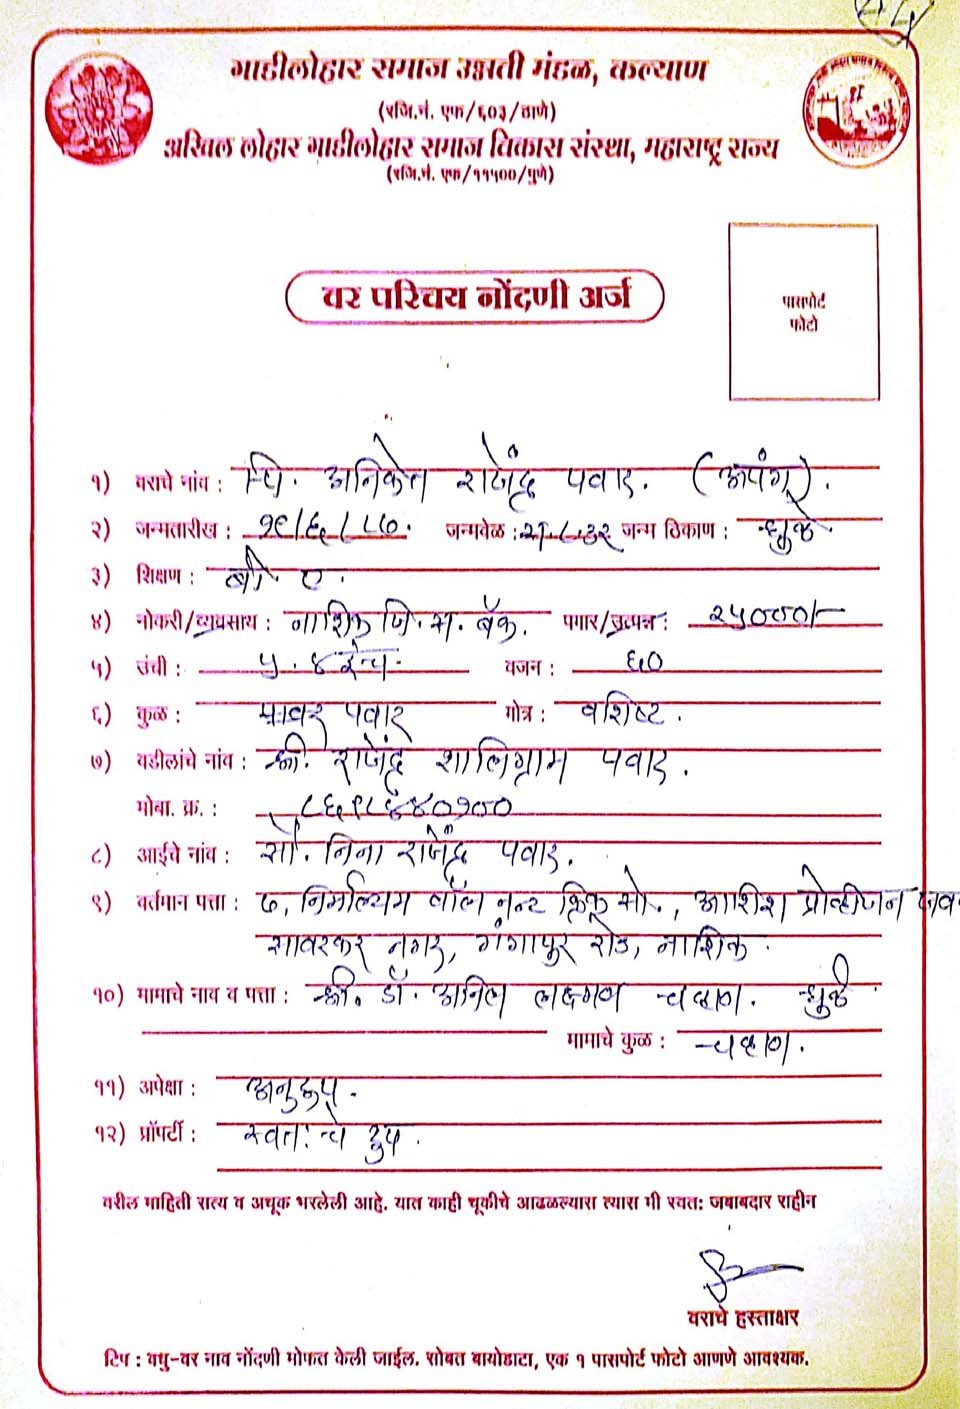 गाडीलोहार समाज उन्नती मंडळ, कल्याण
(रजि.नं. एफ/६०३/ठाणे)
अखिल लोहार गाडीलोहार समाज विकास संस्था, महाराष्ट्र राज्य
(रजि.नं. एफ/११५००/पुणे)
पासपोर्ट
फोटो
वर परिचय नोंदणी अर्ज
१) वराचे नांव : चि. अनिकेत राजेंद्र पवार. (अपंग).
२) जन्मतारीख : १९/६/८७. जन्मवेळ : जन्म ठिकाण : धुळे
३) शिक्षण : बी. ए.
४) नोकरी/व्यवसाय : नाशिक जि. म. बँक. पगार/उत्पन्न : २५०००/-
५) उंची : ५.४ इंच. वजन : ६०
६) कुळ : पवार गोत्र : वशिष्ट.
७) वडीलांचे नांव : श्री. राजेंद्र शालिग्राम पवार.
मोबा. क्र. : ८६९८६४०१००
८) आईचे नांव : सौ. निना राजेंद्र पवार.
९) वर्तमान पत्ता : ७, निर्माल्यम सो., आशिश प्रोव्हीजन जवळ
सावरकर नगर, गंगापुर रोड, नाशिक.
१०) मामाचे नाव व पत्ता : श्री. डॉ. अनिल लक्ष्मण चव्हाण. धुळे
मामाचे कुळ : चव्हाण.
११) अपेक्षा : अनुरूप.
१२) प्रॉपर्टी : स्वतःचे
वरील माहिती सत्य व अचूक भरलेली आहे. यात काही चूकीचे आढळल्यास त्यास मी स्वतः जबाबदार राहीन
वराचे हस्ताक्षर
टिप : वधु-वर नाव नोंदणी मोफत केली जाईल. सोबत बायोडाटा, एक १ पासपोर्ट फोटो आणणे आवश्यक.